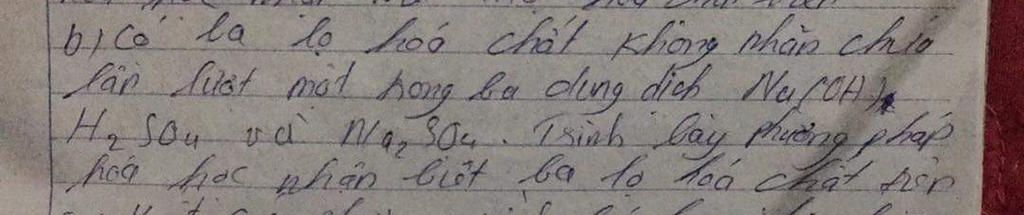 b) Có ba lọ hoá chất không nhãn chứa
lần lượt một trong ba dung dịch Na(OH),
H2SO4 và Na2SO4. Trình bày phương pháp
hoá học nhận biết ba lọ hoá chất trên